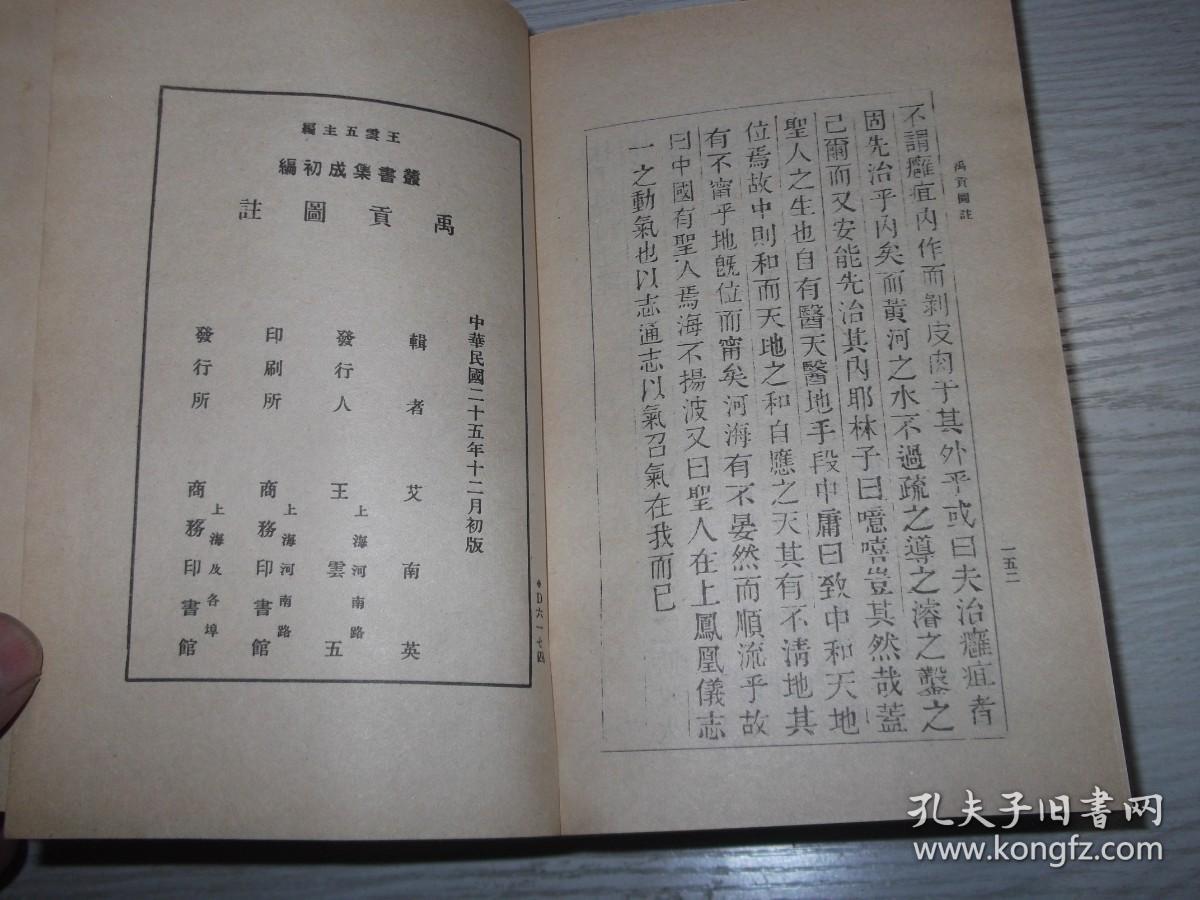 禹貢圖註
一五二
不謂癰疽內作而剝皮肉于其外乎或曰夫治癰疽者
固先治乎內矣而黃河之水不過疏之導之濬之鑿之
己爾而又安能先治其內耶林子曰噫嘻豈其然哉蓋
聖人之生也自有醫天醫地手段中庸曰致中和天地
位焉故中則和而天地之和自應之天其有不清地其
有不甯乎地旣位而甯矣河海有不晏然而順流乎故
曰中國有聖人焉海不揚波又曰聖人在上鳳凰儀志
一之動氣也以志通志以氣召氣在我而已
王雲五主編
叢書集成初編
禹貢圖註
中華民國二十五年十二月初版
輯者 艾南英
發行人 王雲五
上海河南路
印刷所 商務印書館
上海河南路
發行所 商務印書館
上海及各埠
◆D六一七四
孔夫子旧书网
www.kongfz.com